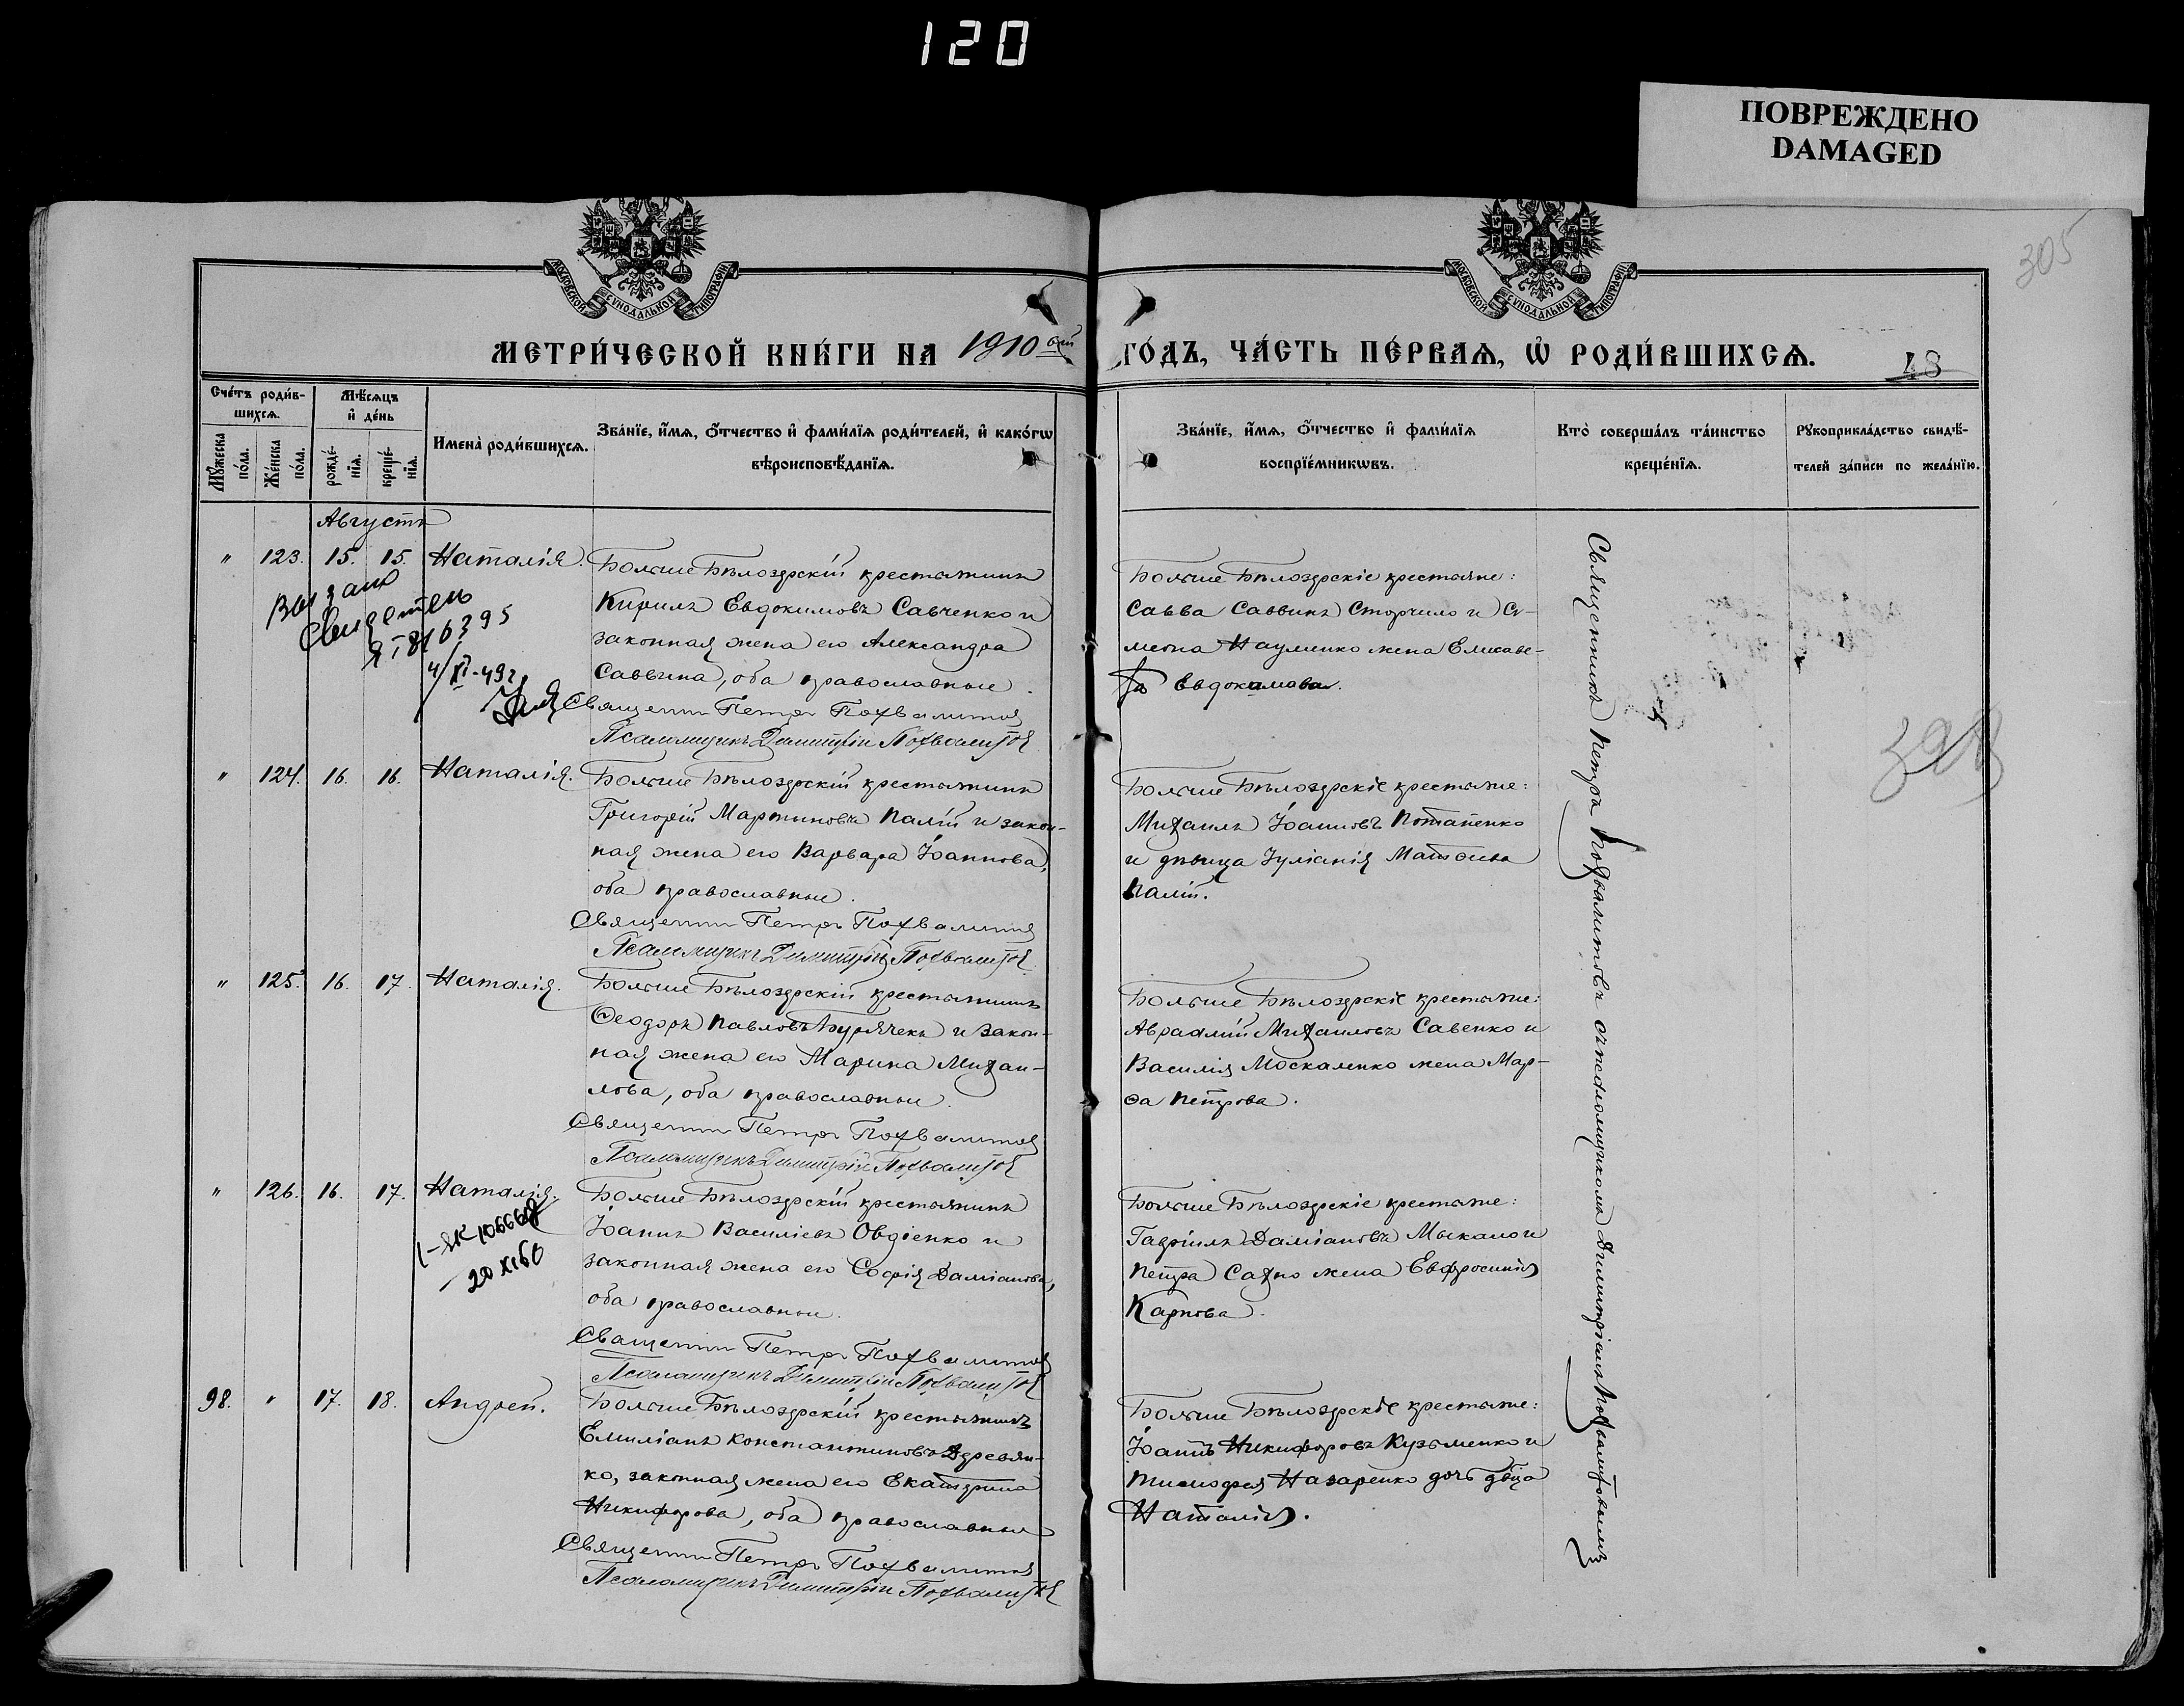 120
ПОВРЕЖДЕНО
DAMAGED
305
МОСКОВСКОЙ СѴНОДАЛЬНОЙ ТИПОГРАФІИ
МОСКОВСКОЙ СѴНОДАЛЬНОЙ ТИПОГРАФІИ
МЕТРИ́ЧЕСКОЙ КНИ́ГИ НА 1910 ый ГО́ДЪ, ЧА́СТЬ ПЕ́РВАѦ, Ѡ҆ РОДИ́ВШИХСѦ.
48
Сче́тъ роди́в-
шихсѧ.
Мѣ́сѧцъ
и҆ де́нь
Мꙋ́жеска
по́ла.
Же́нска
по́ла.
рожде́-
нїѧ.
креще́-
нїѧ.
Имена̀ роди́вшихсѧ.
Зва́нїе, и҆́мѧ, ѻ҆́тчество и҆ фами́лїѧ роди́телей, и҆ како́гѡ
вѣроисповѣ́данїѧ.
Зва́нїе, и҆́мѧ, ѻ҆́тчество и҆ фами́лїѧ
воспрїе́мникѡвъ.
Кто̀ соверша́лъ та́инство
креще́нїѧ.
Рꙋкоприкла́дство свидѣ́-
телей за́писи по жела́нїю.
Августъ
" 123. 15. 15. Наталія.
Больше Бѣлозерскій крестьянинъ
Кирилъ Евдокимовъ Савченко и
законная жена его Александра
Саввина, оба православные.
Священ Петръ Похвалитов
Псаломщикъ Димитрій Похвалитов
Больше Бѣлозерскіе крестьяне:
Савва Саввинъ Сторчило и Си-
меона Науменко жена Елисаве-
та Евдокимова.
Выдано
Свидетель
ЯI 816395
4/XI-49г
" 124. 16. 16. Наталія.
Больше Бѣлозерскій крестьянинъ
Григорій Мартиновъ Палій и закон-
ная жена его Варвара Іоаннова,
оба православные.
Священ Петръ Похвалитов
Псаломщикъ Димитрій Похвалитов
Больше Бѣлозерскіе крестьяне:
Михаилъ Іоанновъ Потапенко
и дѣвица Іуліанія Матѳіева
Палій.
" 125. 16. 17. Наталія.
Больше Бѣлозерскій крестьянинъ
Ѳеодоръ Павловъ Бурячекъ и закон-
ная жена его Марина Михаи-
лова, оба православные.
Священ Петръ Похвалитов
Псаломщикъ Димитрій Похвалитов
Больше Бѣлозерскіе крестьяне:
Авраамій Михаиловъ Савенко и
Василія Москаленко жена Мар-
ѳа Петрова.
" 126. 16. 17. Наталія.
Больше Бѣлозерскій крестьянинъ
Іоаннъ Василіевъ Овдіенко и
законная жена его Софія Даміанова,
оба православные.
Священ Петръ Похвалитов
Псаломщикъ Димитрій Похвалитов
Больше Бѣлозерскіе крестьяне:
Гавріилъ Даміановъ Мыкало и
Петра Сахно жена Евфросинія
Карпова.
98. " 17. 18. Андрей.
Больше Бѣлозерскій крестьянинъ
Емиліанъ Константиновъ Деревян-
ко, законная жена его Екатерина
Никифорова, оба православные
Священ Петръ Похвалитов
Псаломщикъ Димитрій Похвалитов
Больше Бѣлозерскіе крестьяне:
Іоаннъ Никифоровъ Кузьменко и
Тимофея Назаренко дочь дѣвица
Наталія.
Священникъ Петръ Похвалитовъ съ псаломщикомъ Димитріемъ Похвалитовымъ